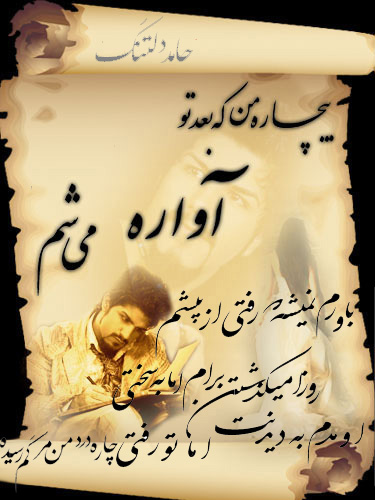 حامد دلتنگ
بیچاره من که بعد تو
آواره می شم
باورم نمیشه رفتی از پیشم
روزا میگذشتن برام اما به سختی
اومدم به دیدنت
اما تو رفتی چاره درد من مرگم رسیده